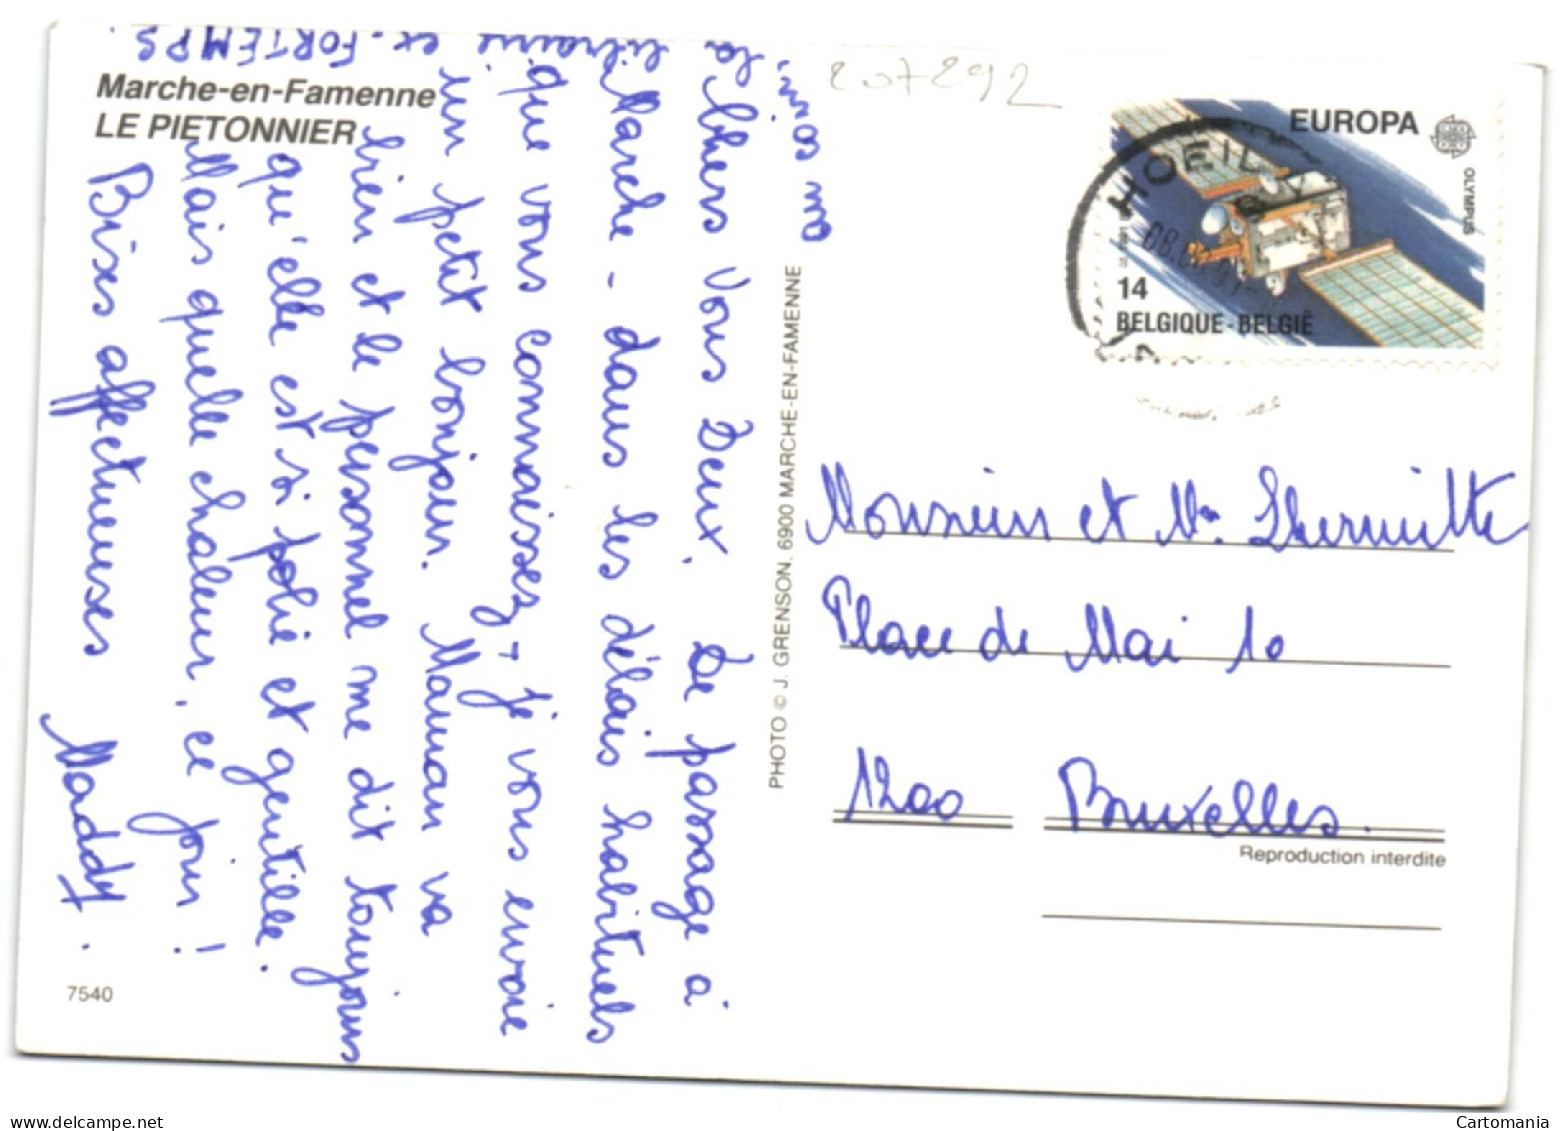 Marche-en-Famenne
LE PIETONNIER
Chers Vous Deux, De passage à
Marche - dans les délais habituels
que vous connaissez, - je vous envoie
un petit bonjour. Maman va
bien et le personnel me dit toujours
qu'elle est si polie et gentille.
Mais quelle chaleur, ce jour!
Bises affectueuses Maddy.
la librairie ex. FORTEMPS.
PHOTO © J. GRENSON. 6900 MARCHE-EN-FAMENNE
207292
EUROPA
OLYMPUS
14
BELGIQUE-BELGIË
HOEIL
Monsieur et Mme Lhermitte
Place de Mai 10
1200 Bruxelles.
Reproduction interdite
7540
Cartomania
delcampe.net